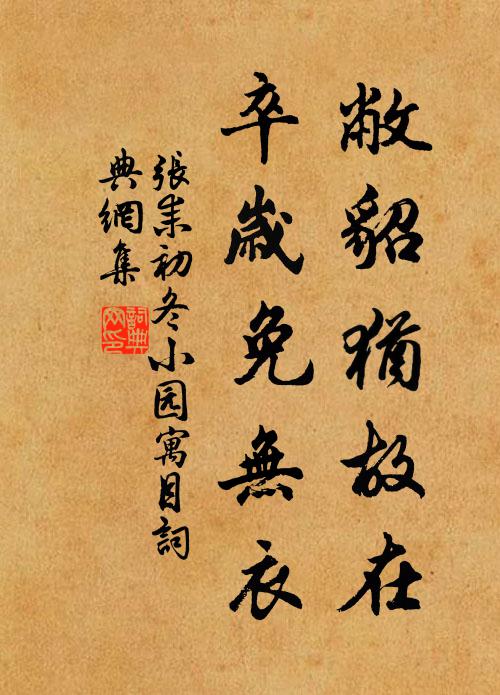 敝貂猶故在
卒歲免無衣
張耒初冬小园寓目詞
典網集
詞典網印